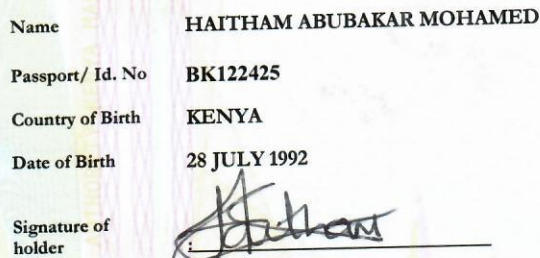 Name HAITHAM ABUBAKAR MOHAMED
Passport/ Id. No BK122425
Country of Birth KENYA
Date of Birth 28 JULY 1992
Signature of
holder : Haitham